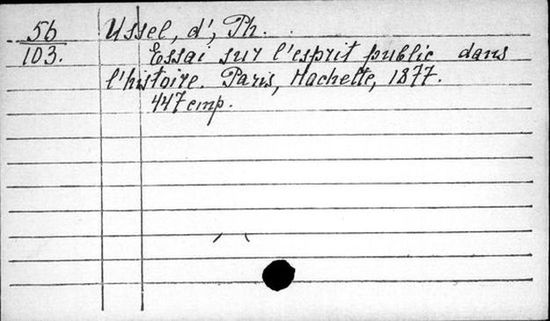 56 Ussel, d', Ph.
103. Essai sur l'esprit public dans
l'histoire. Paris, Hachette, 1877.
447 стр.